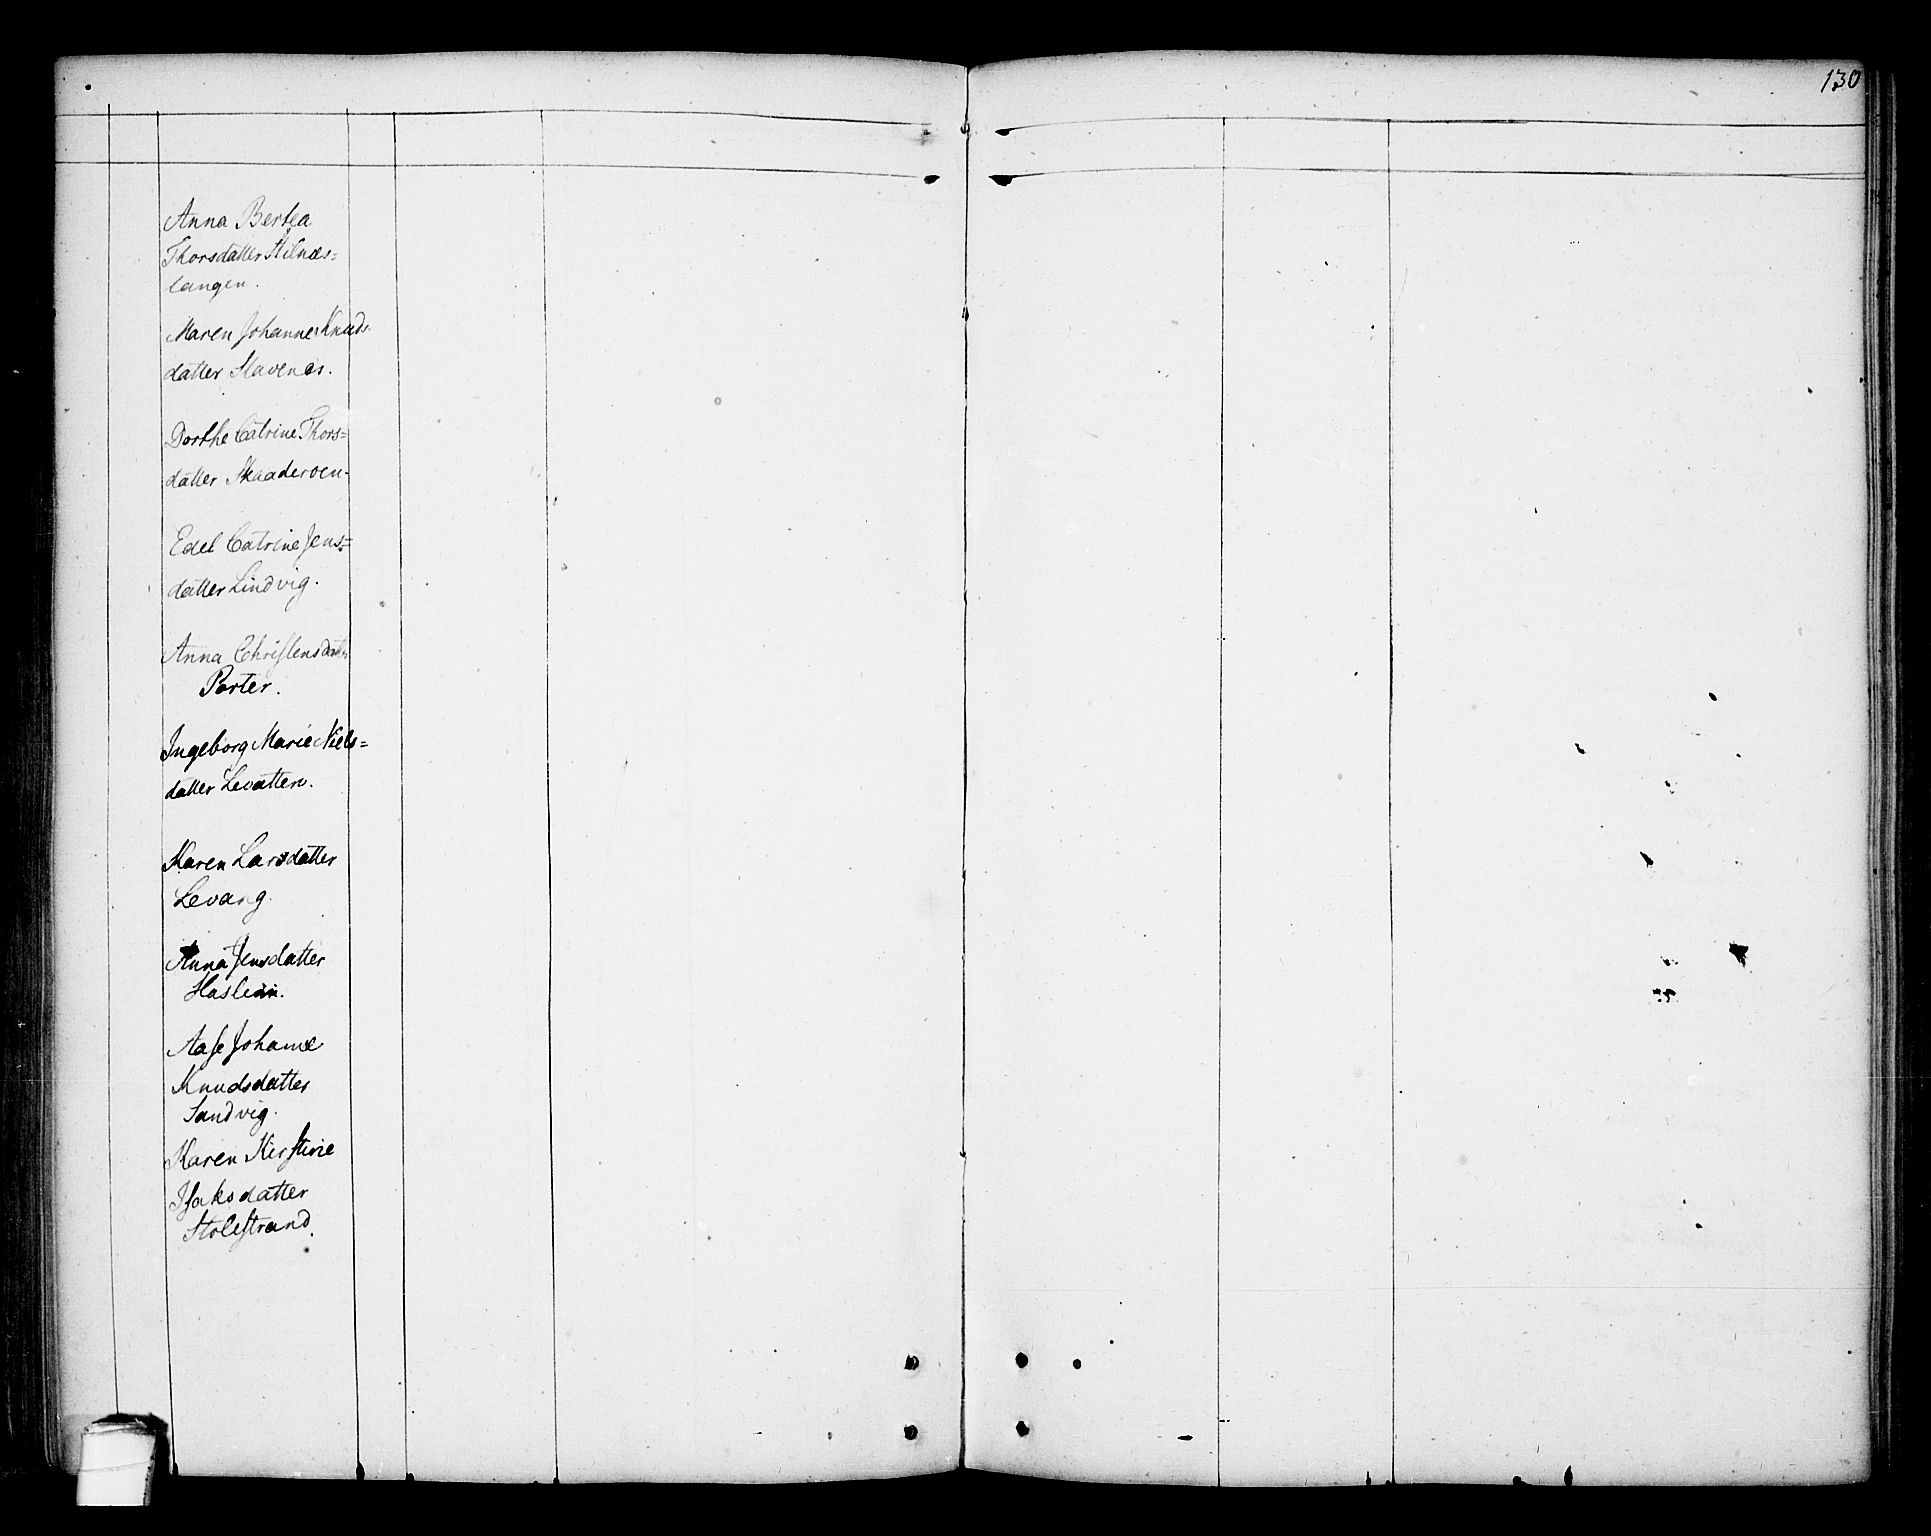 130
Anna Bertea
Thorsdatter Stilnæs=
tangen.
Maren Johanne Knuds-
datter Stavenæs.
Dorthe Catrine Thors=
datter Skaaderoen.
Edel Catrine Jens=
datter Lindvig.
Anna Christensdatter
Porter.
Ingeborg Marie Niels=
datter Levatten.
Karen Larsdatter
Levang.
Anna Jensdatter
Haslem.
Aase Johanne
Knudsdatter
Sandvig.
Karen Kirstine
Isaksdatter
Stolestrand.